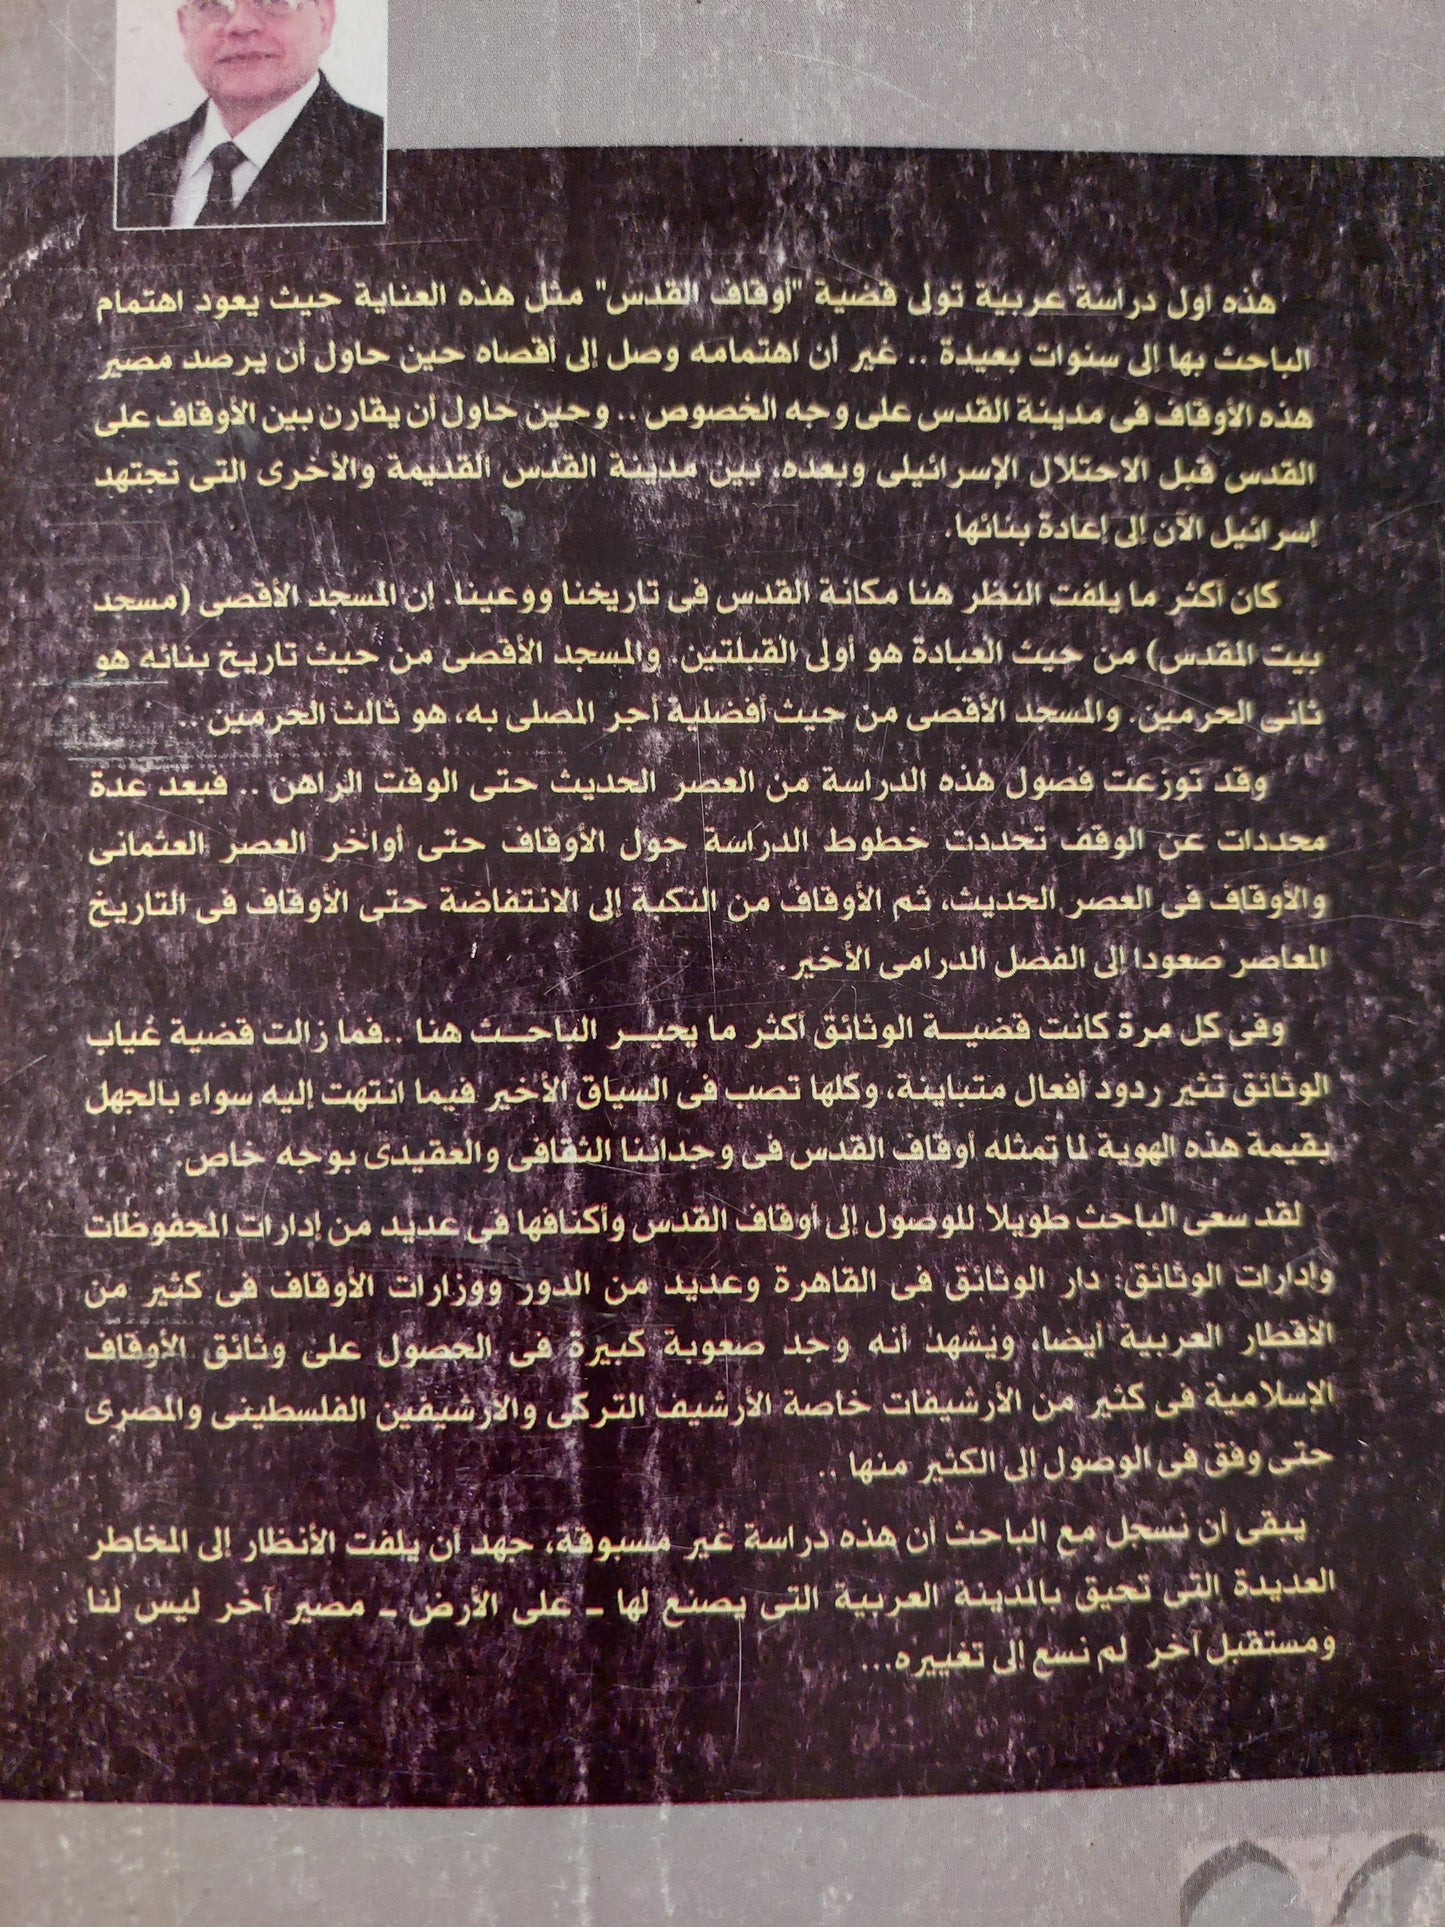 هذه أول دراسة عربية تولى قضية "أوقاف القدس" مثل هذه العناية حيث يعود اهتمام
الباحث بها إلى سنوات بعيدة .. غير أن اهتمامه وصل إلى أقصاه حين حاول أن يرصد مصير
هذه الأوقاف فى مدينة القدس على وجه الخصوص .. وحين حاول أن يقارن بين الأوقاف على
القدس قبل الاحتلال الإسرائيلى وبعده، بين مدينة القدس القديمة والأخرى التى تجتهد
إسرائيل الآن إلى إعادة بنائها.
كان أكثر ما يلفت النظر هنا مكانة القدس فى تاريخنا ووعينا. إن المسجد الأقصى (مسجد
بيت المقدس) من حيث العبادة هو أولى القبلتين. والمسجد الأقصى من حيث تاريخ بنائه هو
ثانى الحرمين. والمسجد الأقصى من حيث أفضلية أجر المصلى به، هو ثالث الحرمين ..
وقد توزعت فصول هذه الدراسة من العصر الحديث حتى الوقت الراهن .. فبعد عدة
محددات عن الوقف تحددت خطوط الدراسة حول الأوقاف حتى أواخر العصر العثمانى
والأوقاف فى العصر الحديث، ثم الأوقاف من النكبة إلى الانتفاضة حتى الأوقاف فى التاريخ
المعاصر صعودا إلى الفصل الدرامى الأخير.
وفى كل مرة كانت قضيـة الوثائق أكثر ما يحيـر الباحـث هنا ..فما زالت قضية غياب
الوثائق تثير ردود أفعال متباينة، وكلها تصب فى السياق الأخير فيما انتهت إليه سواء بالجهل
بقيمة هذه الهوية لما تمثله أوقاف القدس فى وجداننا الثقافى والعقيدى بوجه خاص.
لقد سعى الباحث طويلا للوصول إلى أوقاف القدس وأكنافها فى عديد من إدارات المحفوظات
وإدارات الوثائق: دار الوثائق فى القاهرة وعديد من الدور ووزارات الأوقاف فى كثير من
الأقطار العربية أيضا، ونشهد أنه وجد صعوبة كبيرة فى الحصول على وثائق الأوقاف
الإسلامية فى كثير من الأرشيفات خاصة الأرشيف التركى والأرشيفين الفلسطينى والمصرى
حتى وفق فى الوصول إلى الكثير منها ..
يبقى أن نسجل مع الباحث أن هذه دراسة غير مسبوقة، جهد أن يلفت الأنظار إلى المخاطر
العديدة التى تحيق بالمدينة العربية التى يصنع لها ـ على الأرض ـ مصير آخر ليس لنا
ومستقبل آخر لم نسع إلى تغييره...